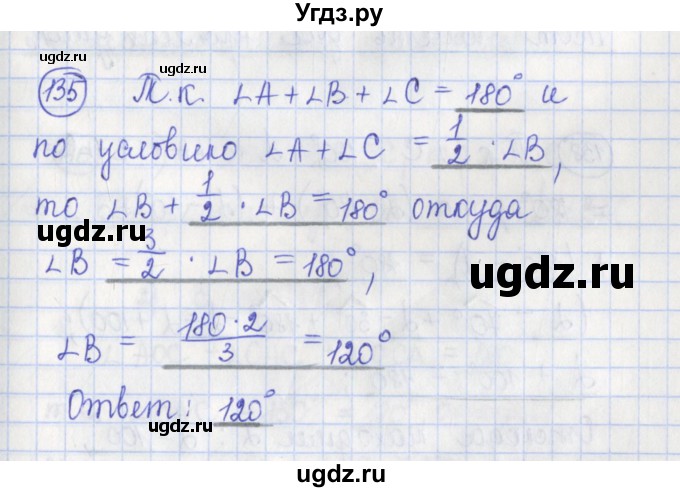 Угдз.ру
ugdz.ru ugdz.ru ugdz.ru
135 Т.к. ∠A + ∠B + ∠C = 180° и
по условию ∠A + ∠C = 1/2 · ∠B,
то ∠B + 1/2 · ∠B = 180° откуда
ugdz.ru
∠B = 3/2 · ∠B = 180°,
ugdz.ru
∠B = 180·2/3 = 120°
Ответ: 120°
ugdz.ru ugdz.ru
ugdz.ru